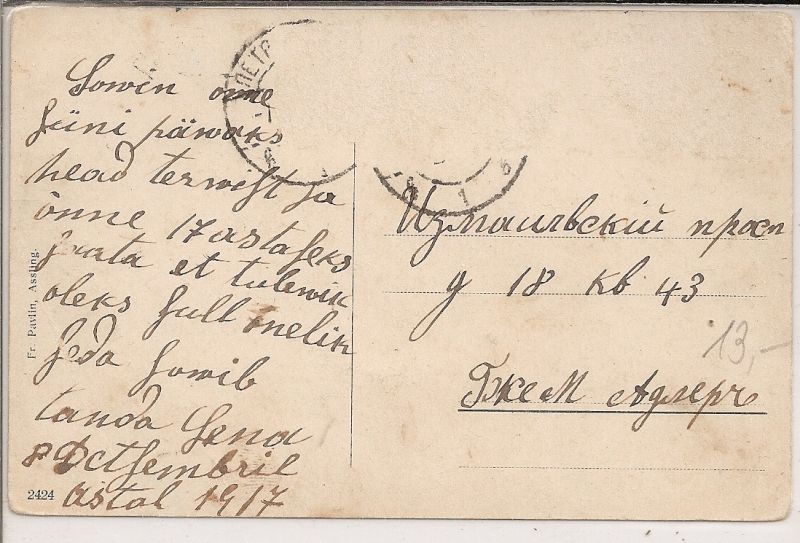 Sowin õnne
süni päwaks
head terwist ja
õnne 17 astaseks
et tulewik
oleks sull õnnelik
seda sowib
tanda Lena
8 Detsembril
astal 1917
Fr. Pavlin, Assling.
2424
ПЕТР
Измаильвскій просп
д 18 кв 43
13,-
Г-же М Адлеръ